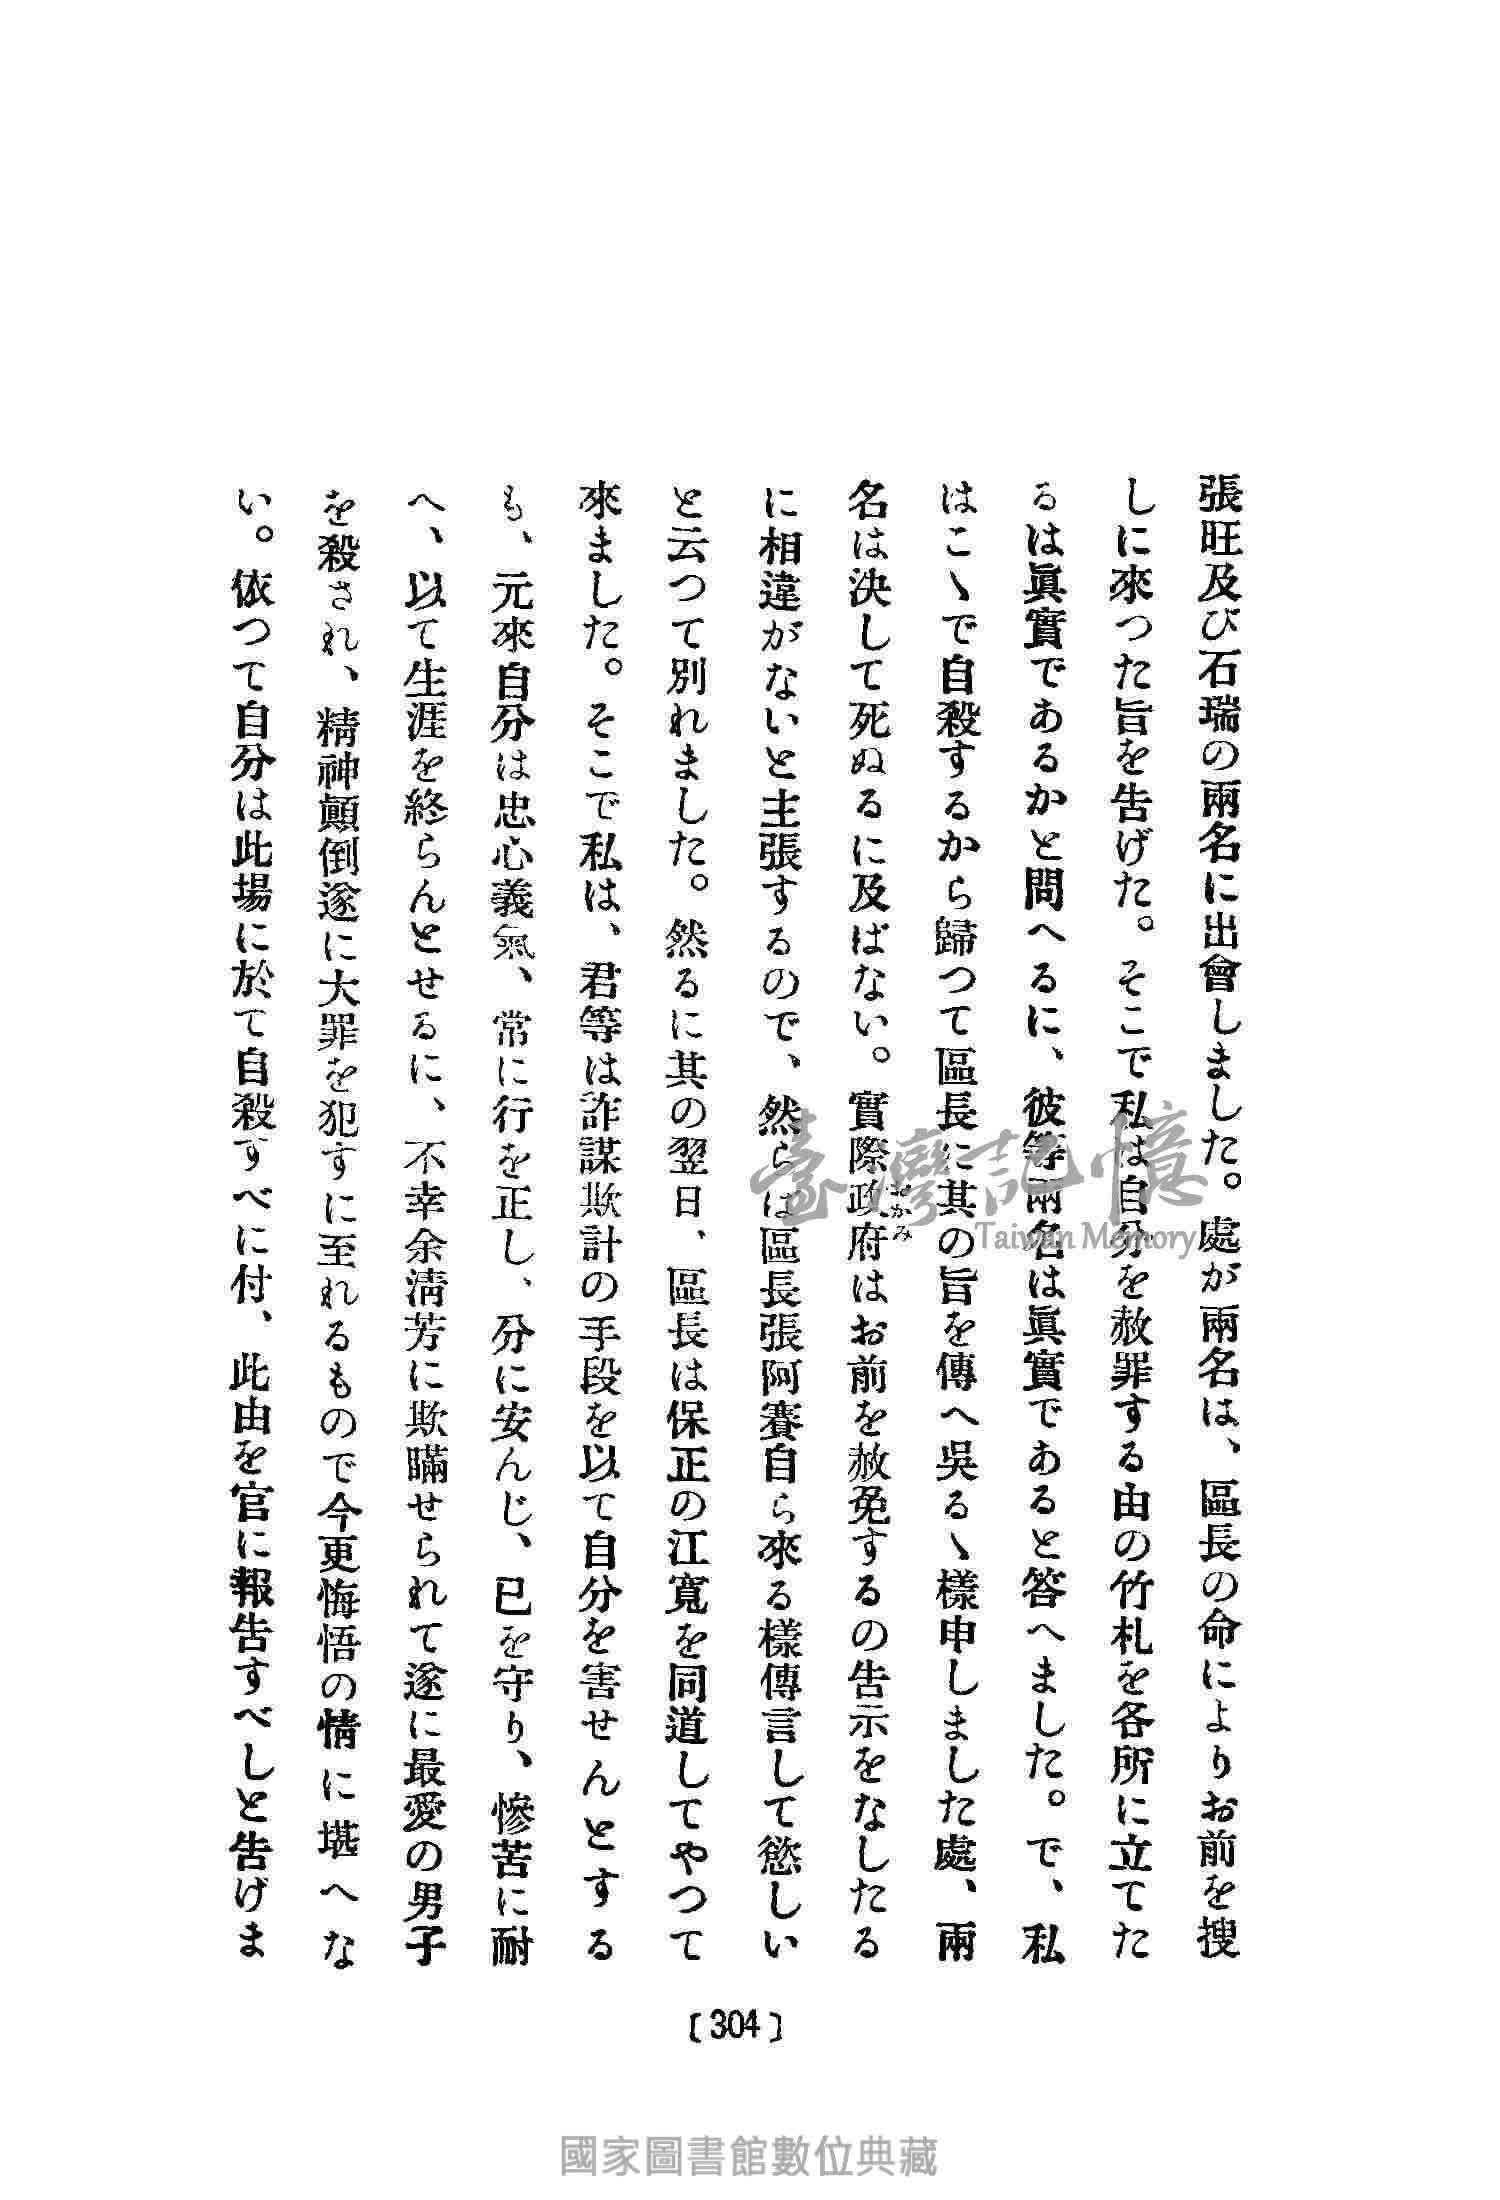 張旺及び石瑞の兩名に出會しました。處が兩名は、區長の命によりお前を搜
しに來つた旨を告げた。そこで私は自分を赦罪する由の竹札を各所に立てた
るは眞實であるかと問へるに、彼等兩名は眞實であると答へました。で、私
はこゝで自殺するから歸つて區長に其の旨を傳へ吳るゝ樣申しました處、兩
名は決して死ぬるに及ばない。實際政府はお前を赦免するの告示をなしたる
おかみ
に相違がないと主張するので、然らは區長張阿賽自ら來る樣傳言して慾しい
と云つて別れました。然るに其の翌日、區長は保正の江寬を同道してやつて
來ました。そこで私は、君等は詐謀欺計の手段を以て自分を害せんとする
も、元來自分は忠心義氣、常に行を正し、分に安んじ、已を守り、慘苦に耐
へ、以て生涯を終らんとせるに、不幸余淸芳に欺瞞せられて遂に最愛の男子
を殺され、精神顛倒遂に大罪を犯すに至れるもので今更悔悟の情に堪へな
い。依つて自分は此場に於て自殺すべに付、此由を官に報告すべしと告げま
[304]
臺灣記憶
Taiwan Memory
國家圖書館數位典藏